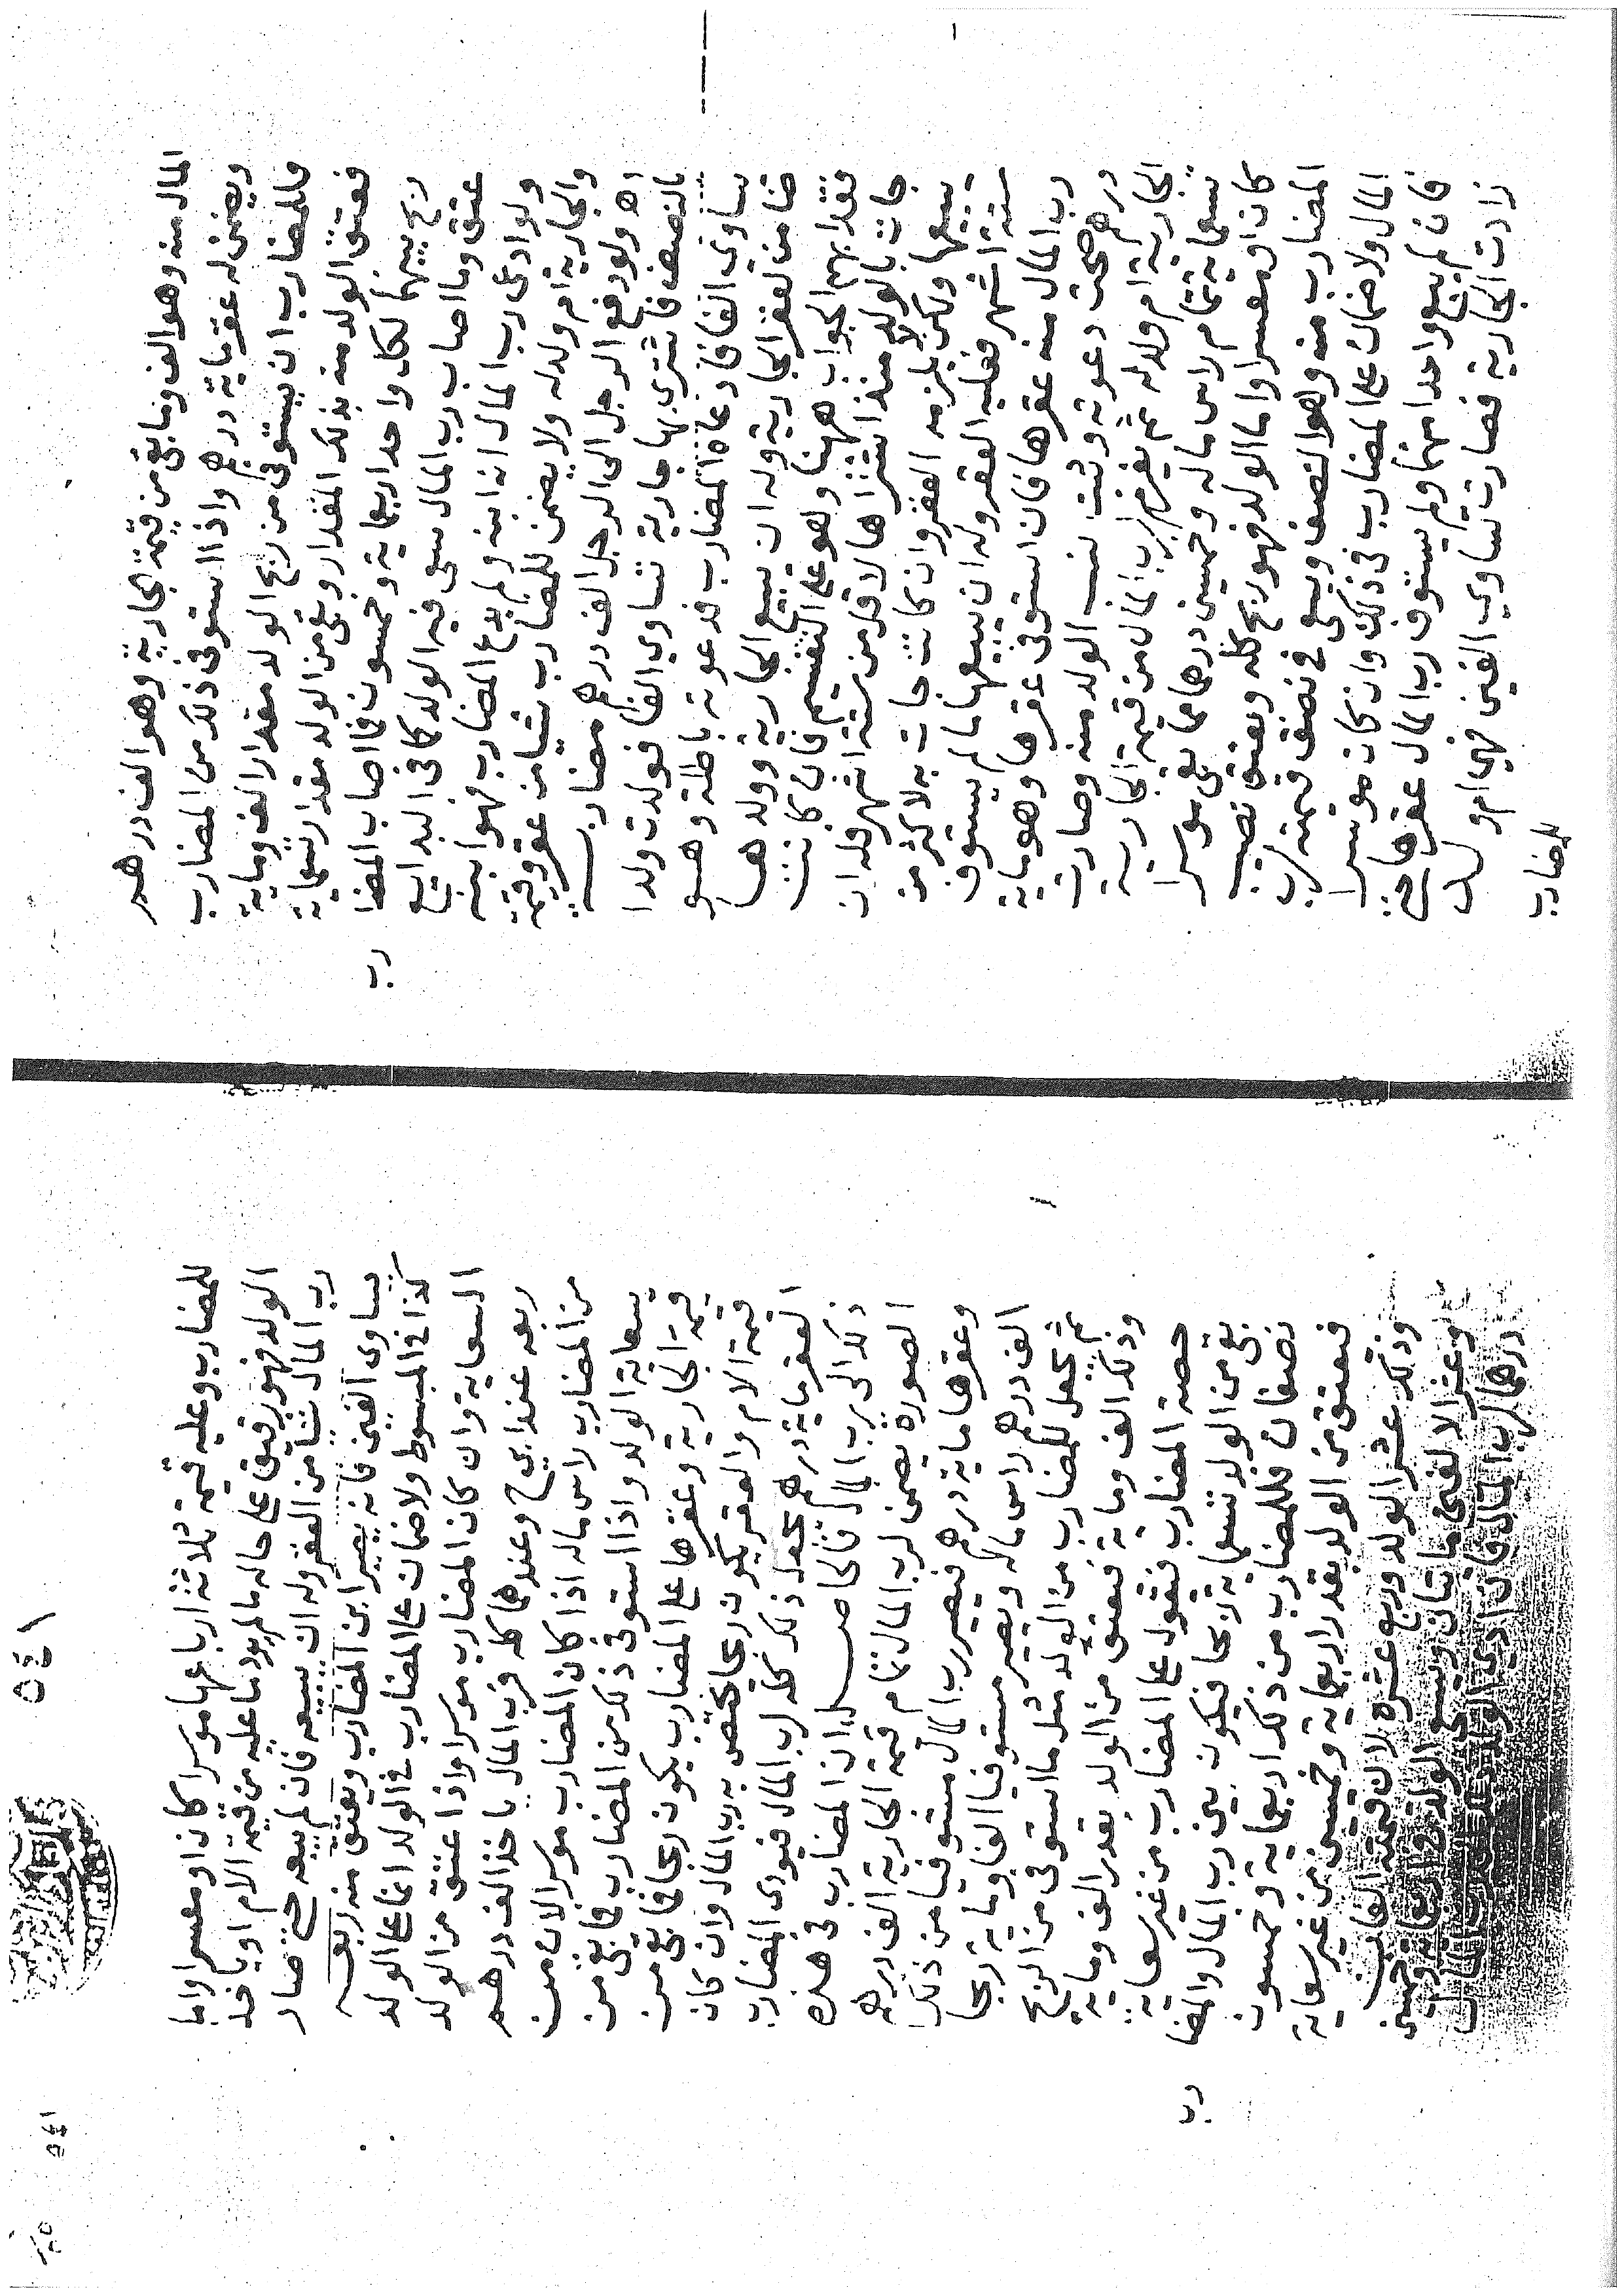 المال منه وهو الف وما بقي من قيمة الجارية وهو الف درهم
ويضمن له عقر ماية درهم واذا استوفى ذلك من المضارب
فللمضارب ان يستوفي من ربح الولد مقدار الف وماية
فعتق الولد منه بذلك المقدار وبقي من الولد مقدار تسعماية
ربح بينهما لكل واحد اربعماية وخمسون فما اصاب المضا
رب
عتق وما اصاب رب المال سعى فيه الولد كما في البدايع
ولو ادعى رب المال انه ابنه ولم يدع المضارب فهو ابنه
والجارية ام ولد له ولا يضمن للمضارب شيا من عقر وقيمة
اهـ ولو دفع الرجل الى الرجل الف درهم مضاربة
بالنصف فاشترى بها جارية تساوي الفا فولدت ولدا
يساوي الفا فادعاه المضارب فدعوته باطلة وهو
ضامن لعقر الجارية وله ان يبيع الجارية وولدها
فقد ابهم الجواب ههنا وهو على التقسيم فان كانت
جات بالولد منذ اشتراها لاقل من ستة اشهر فله ان
يبيعها ولكن لا يلزمه العقر وان كانت جات به لاكثر من
ستة اشهر فعليه العقر وله ان يبيعها ما لم يستوف
رب المال منه عقرها فان استوفى عقرها وهو ماية
درهم صحت دعوته وثبت نسب الولد منه وصارت
الجارية ام ولد له ثم يغرم لرب المال من قيمة الجارية
تسعماية تمام راس ماله وخمسين درهما مما بقي موسرا
كان او معسرا واما الولد فهو ربح كله ويعتق نصيب
المضارب منه وهو النصف ويسعى في نصف قيمته لرب
المال ولا ضمان على المضارب في ذلك وان كان موسرا
فان لم يبع واحدا منهما ولم يستوف رب المال عقرها حتى
زادت الجارية فصارت تساوي الفين فهي ام ولد
للمضارب
للمضارب وعليه قيمة ثلاثة ارباعها موسرا كان او معسرا واما
الولد فهو رقيق على حاله ما لم يود ما عليه من قيمة الام او ياخذ
رب المال شيا من العقر وله ان يبيعه فان لم يبيعه حتى صار
يساوي الفين فانه يصير ابن المضارب ويعتق منه ربعه
كذا في المبسوط ولا ضمان على المضارب في الولد انما على الولد
السعاية وان كان المضارب موسرا واذا عتق من الولد
ربعه عند ابي ح وعندهما كله فرب المال ياخذ الف درهم
من المضارب راس ماله اذا كان المضارب موسرا لان من
سعاية الولد واذا استوفى ذلك من المضارب فما بقي من
قيمة الجارية وعقرها على المضارب يكون ربحا فما بقي من
قيمة الام والعقر يكون ربحا يختص به رب المال وان كان
العقر ماية درهم يجعل ذلك كله لرب المال فيودي المضارب
ذلك الى رب المال فالحاصل ان المضارب في هذه
الصورة يضمن لرب المال تمام قيمة الجارية الف درهم
وعقرها ماية درهم فيصير رب المال مستوفيا من ذلك
الف درهم راس ماله ويصير مستوفيا الفا وماية ربحا
ثم يجعل للمضارب من الولد مثل ما استوفى من الربح
وذلك الف وماية فيعتق من الولد بقدر الف وماية
حصة المضارب فنقول على المضارب من غير سعاية
بقي من الولد تسعماية ربحا فيكون بين رب المال والمضا
رب
نصفان فللمضارب من ذلك اربعماية وخمسون
فيعتق من الولد بقدر اربعماية وخمسين من غير سعاية
وذلك عشر الولد وربع عشره لان قيمته الفان
وعشر الالفين ماتان ويسعى الولد في اربعماية وخمسين
درهما لرب المال فان ادى الولد ذلك لرب المال